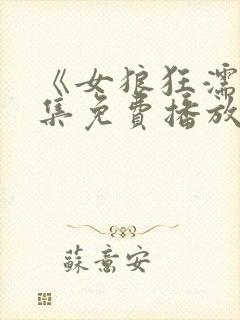 《女狼狂濡
集免費播放
蘇意安